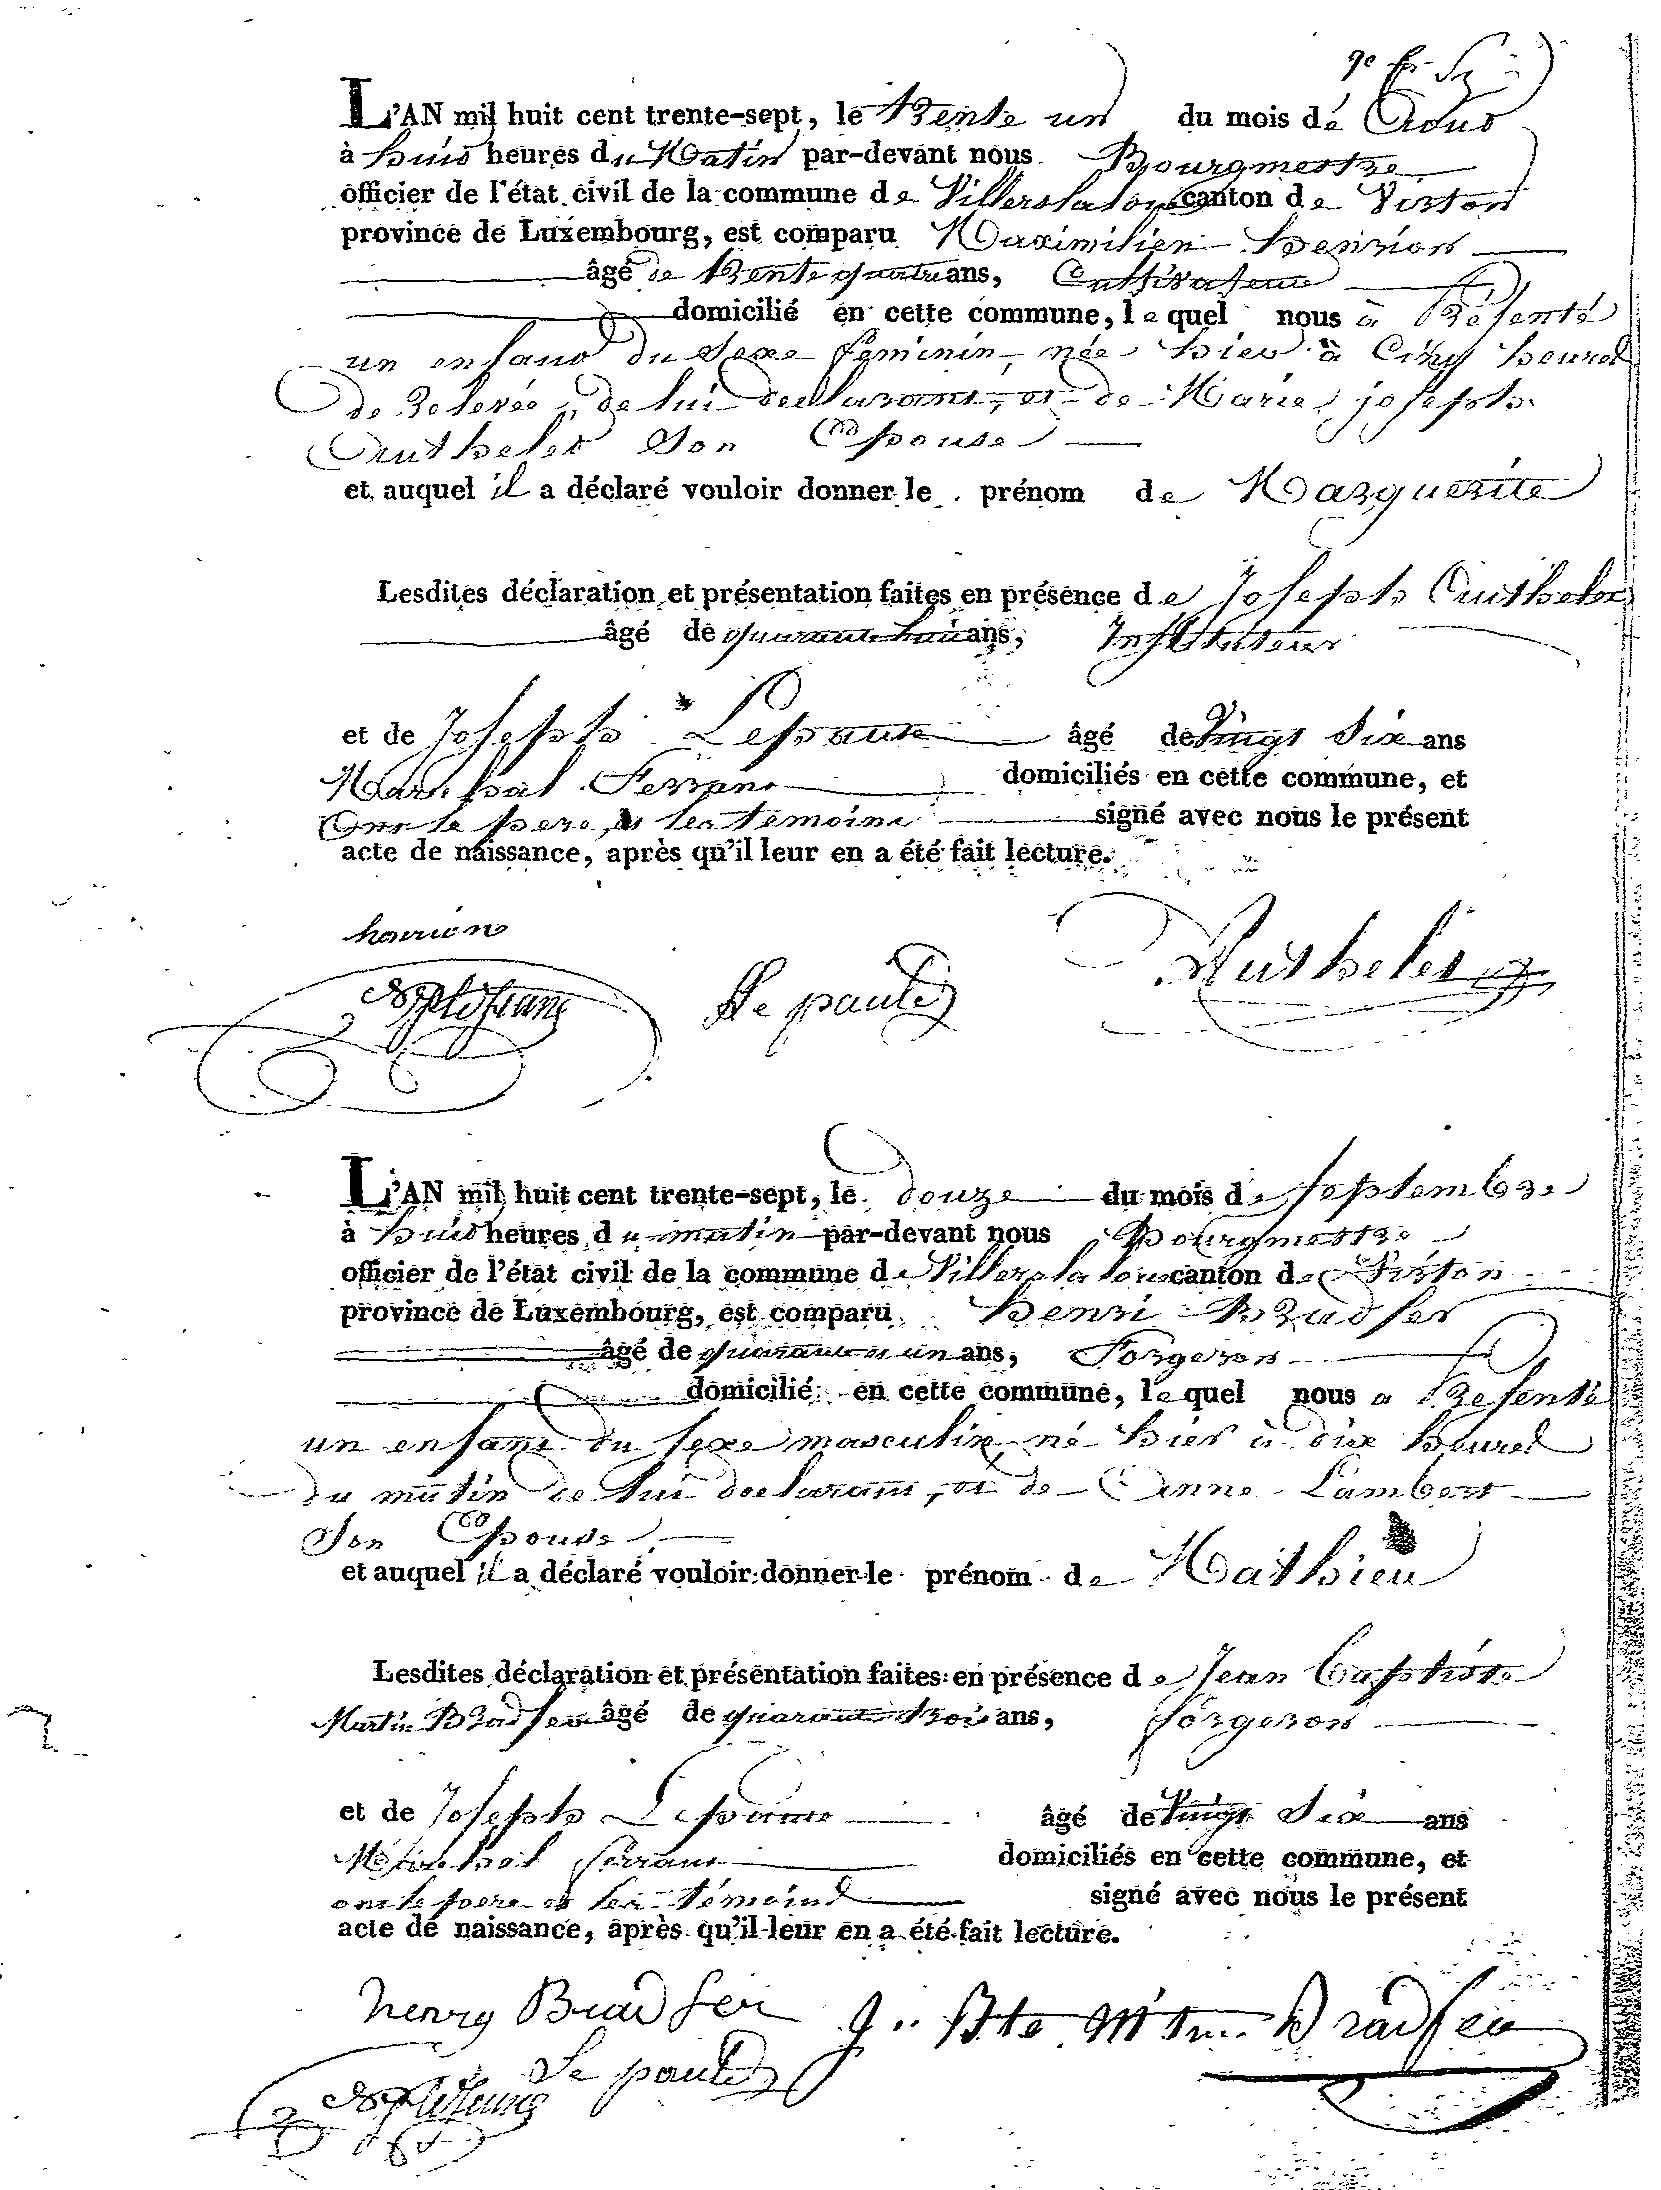 L'AN mil huit cent trente-sept, le Trente un du mois de Aout
à huit heures du Matin par-devant nous Bourgmestre
officier de l'état civil de la commune de Villerslaloue canton de Virton
province de Luxembourg, est comparu Maximilien henrion
âgé de Trente quatre ans, Cultivateur
domicilié en cette commune, lequel nous à Présenté
un enfant du Sexe feminin, née hier à Cinq heures
de Relevée, de lui declarant, et de Marie joseph
Authelet Son Epouse
et auquel il a déclaré vouloir donner le prénom de Marguerite
Lesdites déclaration et présentation faites en présence de Joseph Authelet
âgé de quarante huit ans, Instituteur
et de Joseph Lepaute âgé de Vingt Six ans
Marechal Ferrant domiciliés en cette commune, et
Ont le pere, et les temoins signé avec nous le présent
acte de naissance, après qu'il leur en a été fait lecture.
henrion
Authelet
Le paute
L'AN mil huit cent trente-sept, le douze du mois de Septembre
à huit heures du matin par-devant nous Bourgmestre
officier de l'état civil de la commune de Villerslaloue canton de Virton
province de Luxembourg, est comparu henri Bradfer
âgé de quarante un ans, Forgeron
domicilié en cette commune, lequel nous a Présenté
un enfant du sexe masculin, né hier à dix heures
du matin de lui declarant, et de Anne Lambert
Son Epouse
et auquel il a déclaré vouloir donner le prénom de Mathieu
Lesdites déclaration et présentation faites en présence de Jean baptiste
Martin Bradfer âgé de quarante trois ans, forgeron
et de Joseph Lepaute âgé de Vingt Six ans
Maréchal ferrant domiciliés en cette commune, et
ont le pere et les témoins signé avec nous le présent
acte de naissance, après qu'il leur en a été fait lecture.
henry Bradfer J. Bte Mtin Bradfer
Le paute